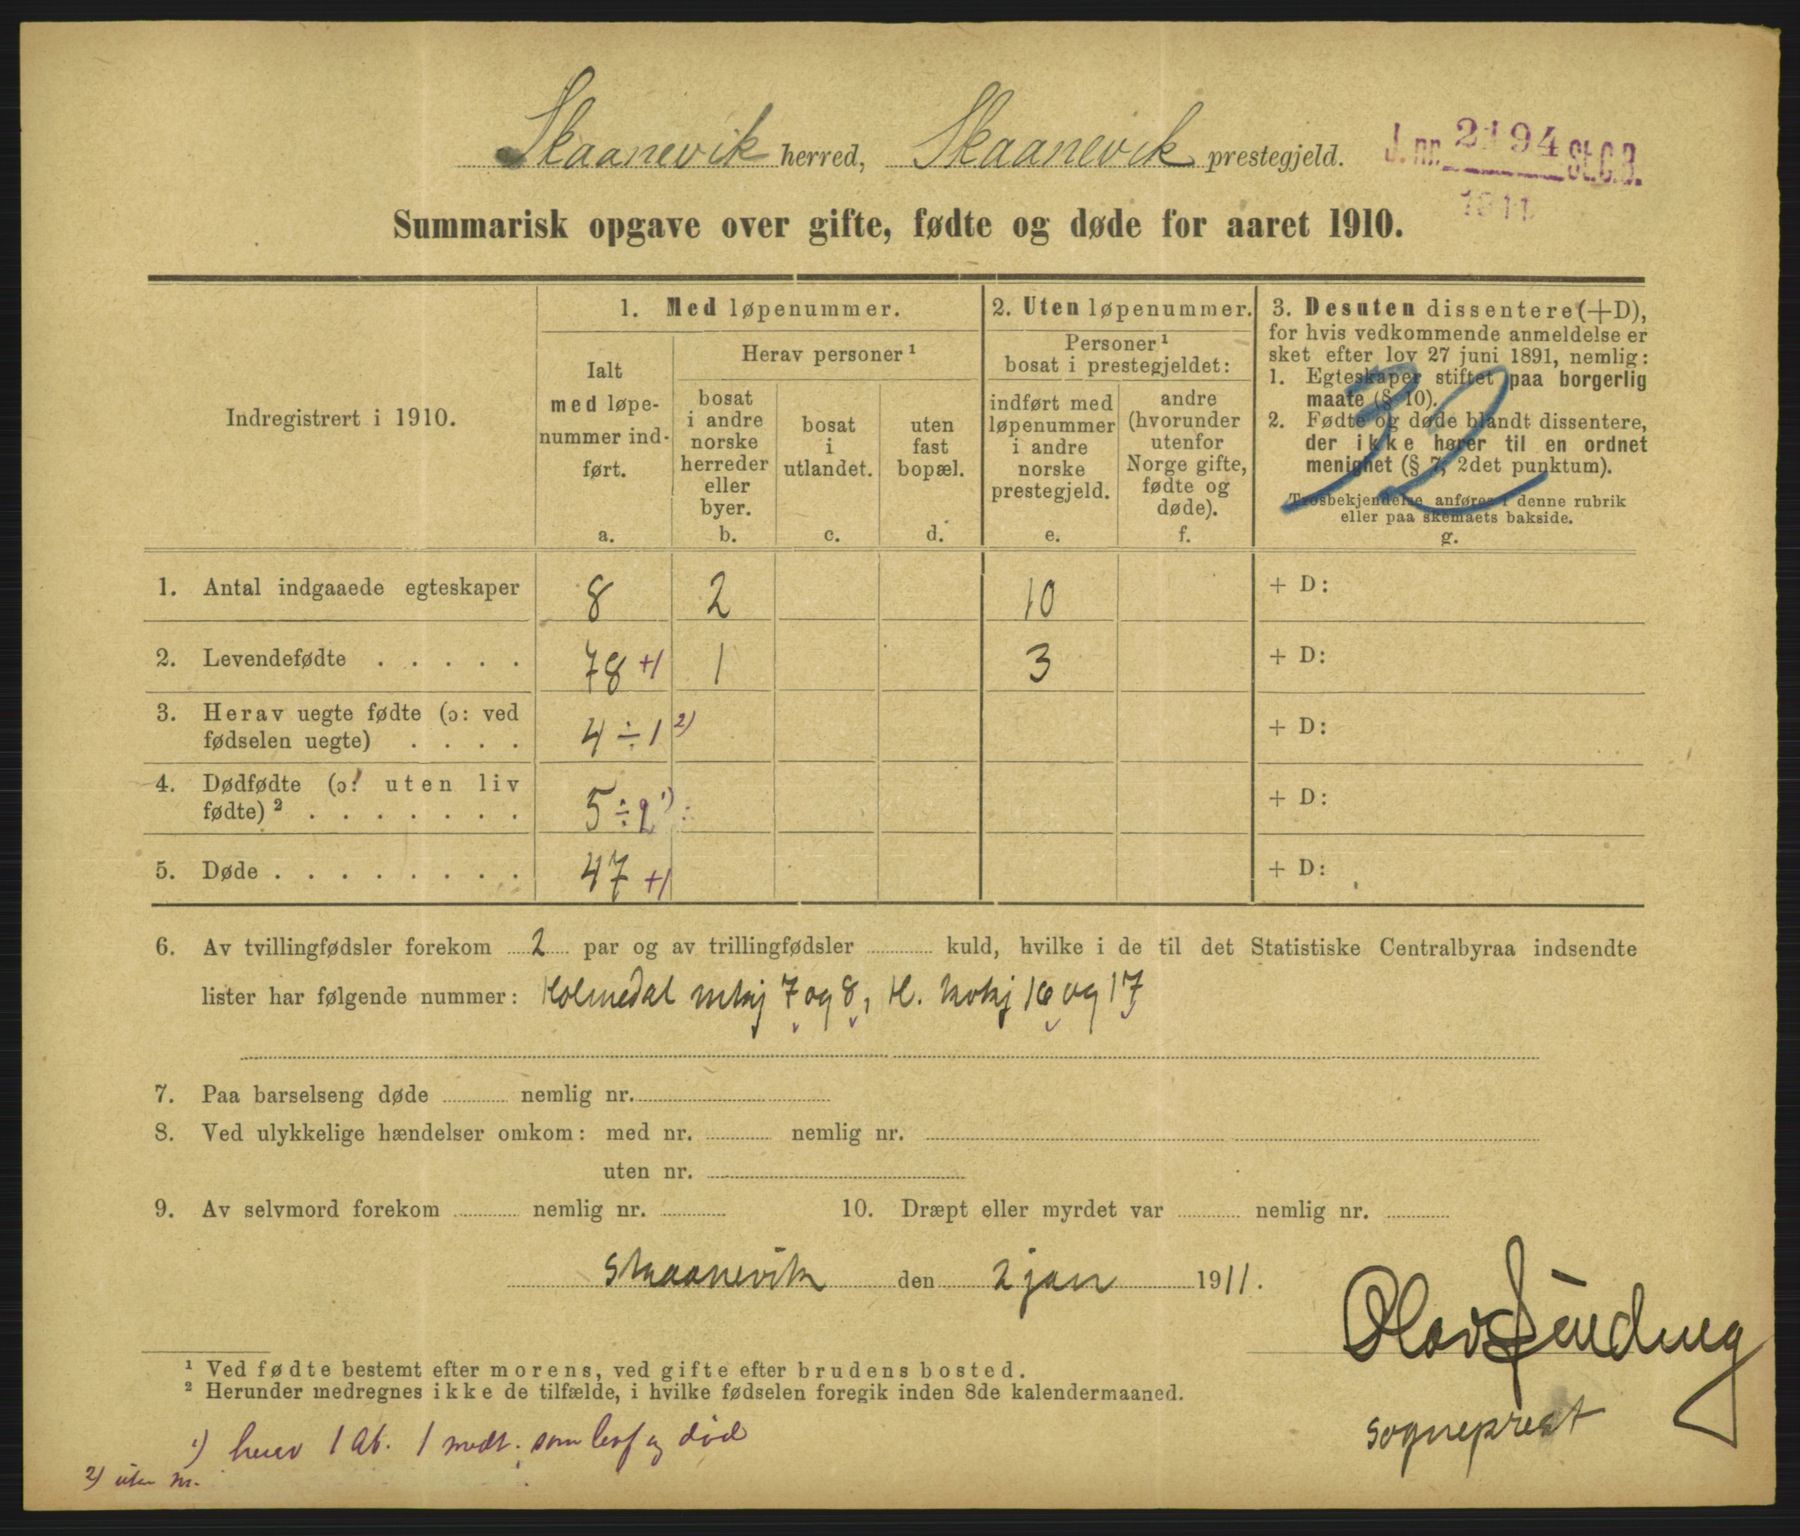 Skaanevik herred, Skaanevik prestegjeld.
J. nr. 2194 St.C.B.
1911
Summarisk opgave over gifte, fødte og døde for aaret 1910.
Indregistrert i 1910.
1. Med løpenummer.
Ialt
med løpe-
nummer ind-
ført.
a.
Herav personer ¹
bosat
i andre
norske
herreder
eller
byer.
b.
bosat
i
utlandet.
c.
uten
fast
bopæl.
d.
2. Uten løpenummer.
Personer ¹
bosat i prestegjeldet:
indført med
løpenummer
i andre
norske
prestegjeld.
e.
andre
(hvorunder
utenfor
Norge gifte,
fødte og
døde).
f.
3. Desuten dissentere (+D),
for hvis vedkommende anmeldelse er
sket efter lov 27 juni 1891, nemlig:
1. Egteskaper stiftet paa borgerlig
maate (§ 10).
2. Fødte og døde blandt dissentere,
der ikke hører til en ordnet
menighet (§ 7, 2det punktum).
Trosbekjendelse anføres i denne rubrik
eller paa skemaets bakside.
g.
1. Antal indgaaede egteskaper 8 2 10 + D:
2. Levendefødte . . . . . 78 +1 1 3 + D:
3. Herav uegte fødte (ɔ: ved
fødselen uegte) . . . . 4 ÷ 1 2) + D:
4. Dødfødte (ɔ: uten liv
fødte) ² . . . . . . . 5 ÷ 2 1) + D:
5. Døde . . . . . . . . 47 +1 + D:
6. Av tvillingfødsler forekom 2 par og av trillingfødsler kuld, hvilke i de til det Statistiske Centralbyraa indsendte
lister har følgende nummer: Holmedal mkj 7 og 8, H. kvkj 16 og 17
7. Paa barselseng døde nemlig nr.
8. Ved ulykkelige hændelser omkom: med nr. nemlig nr.
uten nr.
9. Av selvmord forekom nemlig nr. 10. Dræpt eller myrdet var nemlig nr.
Skaanevik den 2 jan 1911.
Olav Sinding
sogneprest
¹ Ved fødte bestemt efter morens, ved gifte efter brudens bosted.
² Herunder medregnes ikke de tilfælde, i hvilke fødselen foregik inden 8de kalendermaaned.
1) herav 1 Ab. 1 medt. som lev og død
2) uten nr.